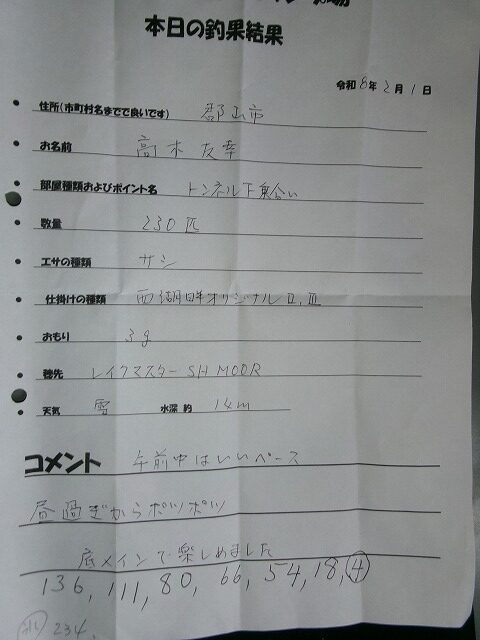 本日の釣果結果
令和8年2月1日
住所(市町村名までで良いです) 郡山市
お名前 高木友幸
部屋種類およびポイント名 トンネル下乗合い
数量 230匹
エサの種類 サシ
仕掛けの種類 西湖畔オリジナルⅡ,Ⅲ
おもり 3g
穂先 レイクマスターSH MOOR
天気 雪 水深 約 14m
コメント 午前中はいいペース
昼過ぎからポツポツ
底メインで楽しめました
136, 111, 80, 66, 54, 18, ④
234,